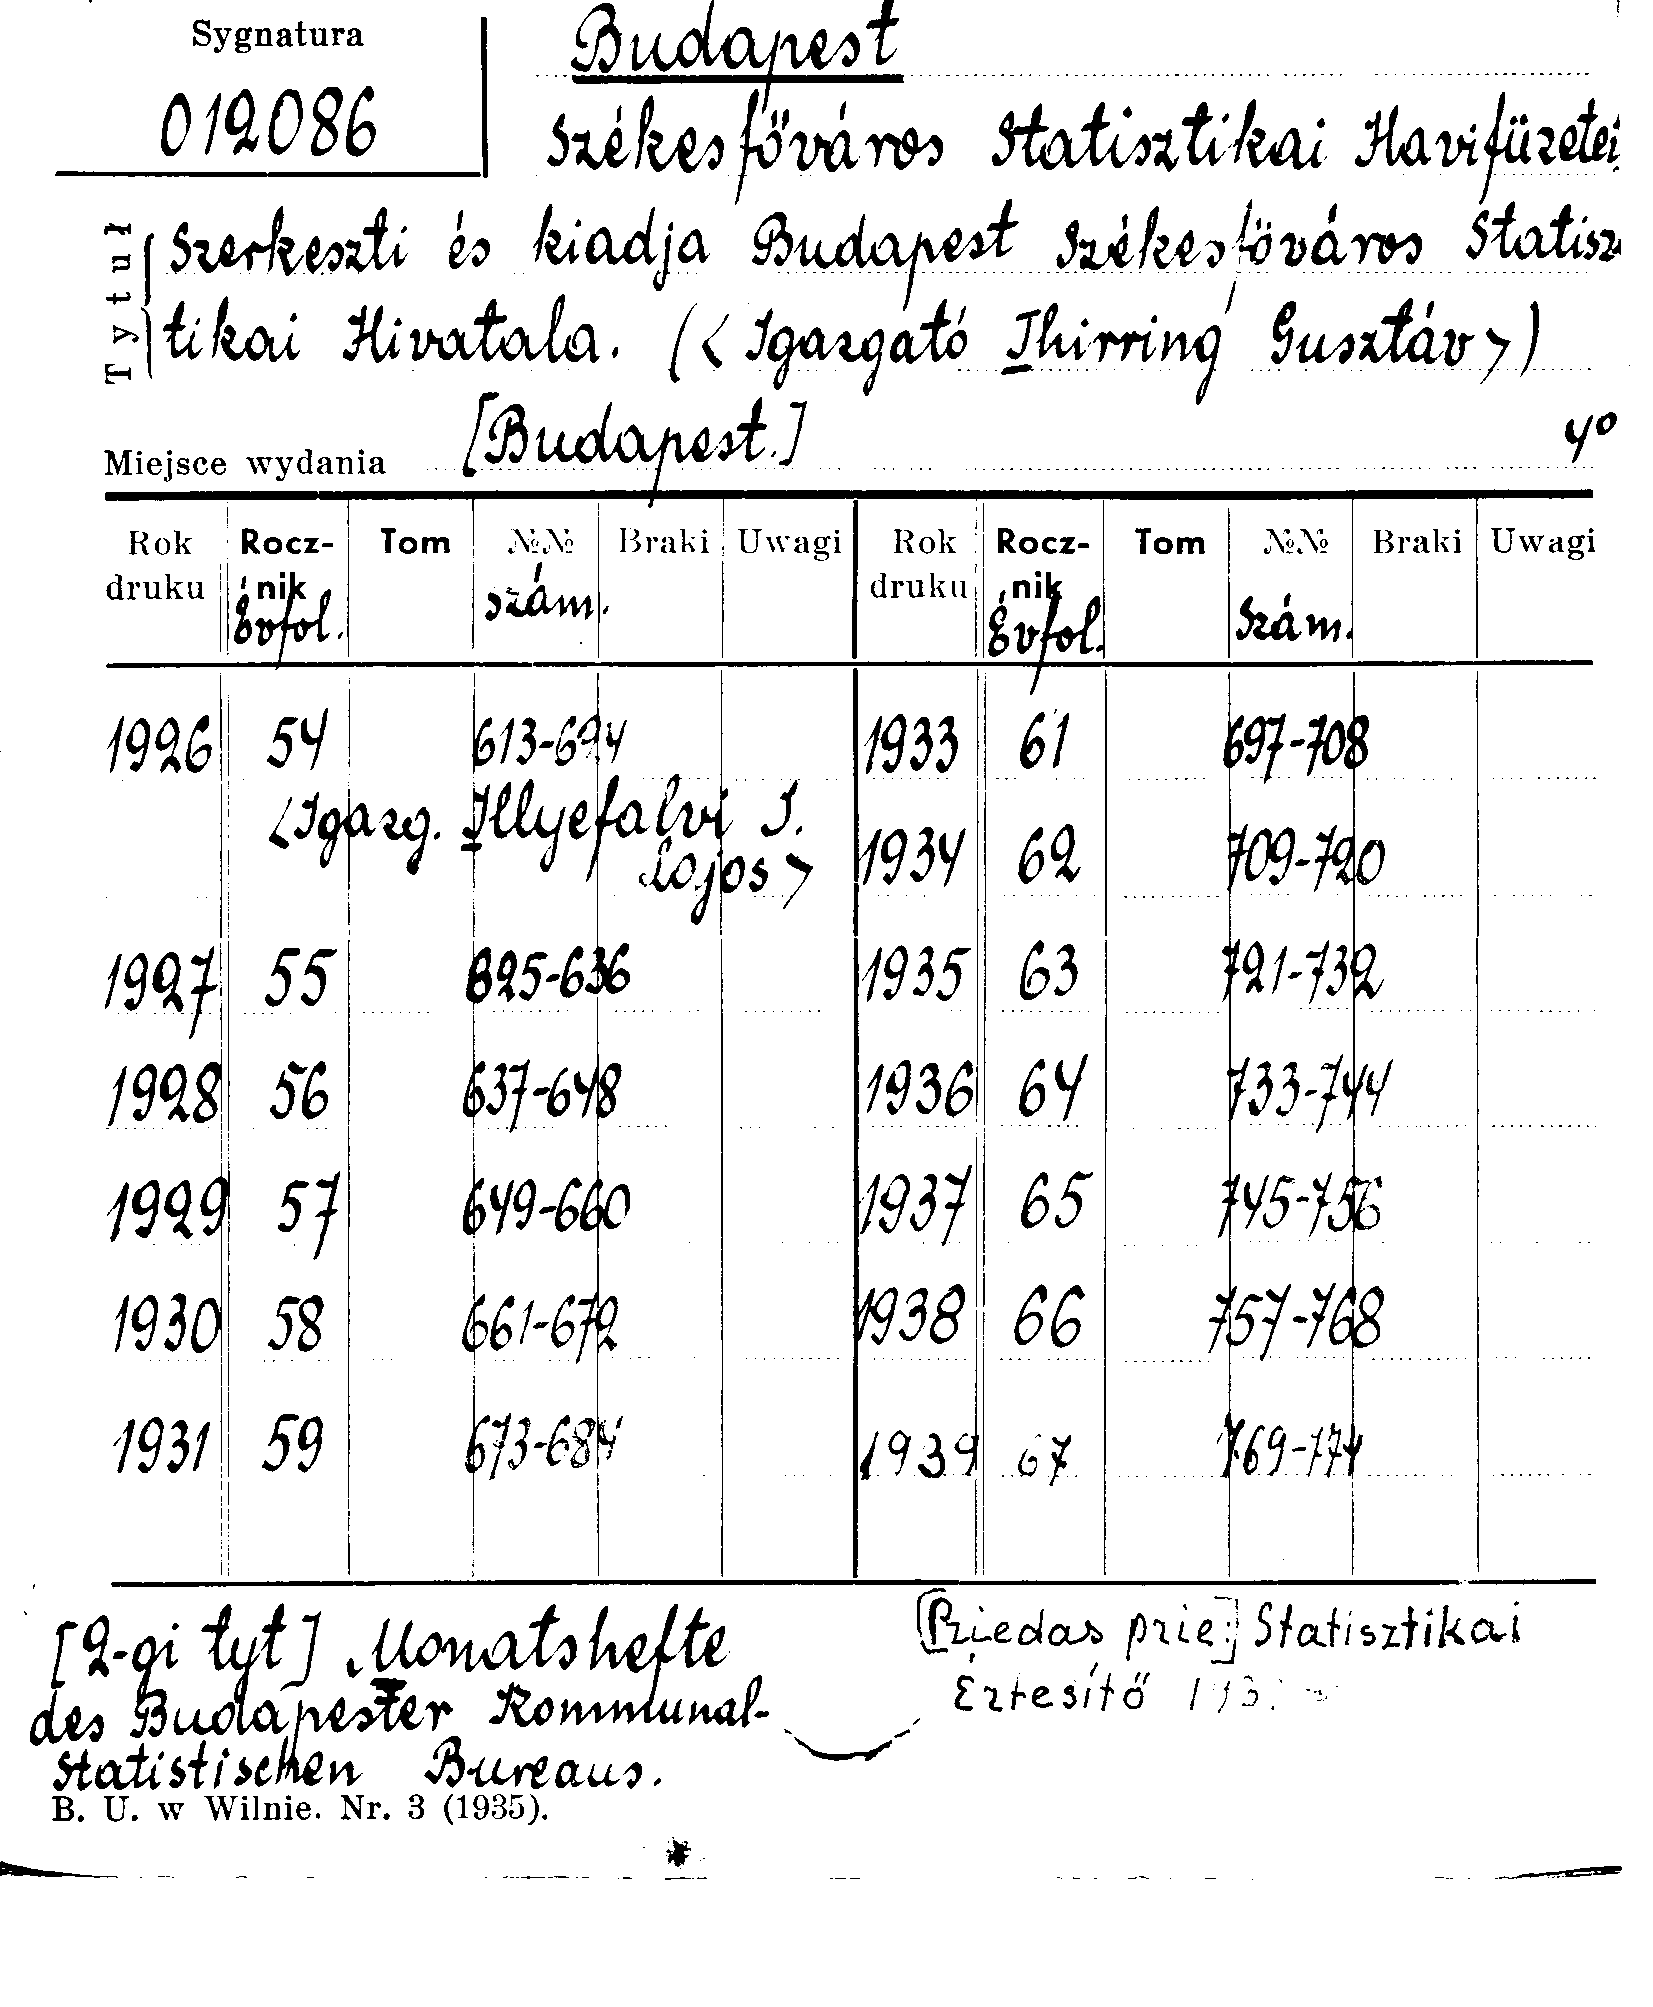 Sygnatura
012086
Budapest
Székesfőváros Statisztikai Havifüzetei
Tytuł
Szerkeszti és kiadja Budapest Székesfőváros Statisz-
tikai Hivatala. (< Igazgató Thirring Gusztáv >)
Miejsce wydania [Budapest.] 4º
Rok druku Rocz-nik Tom №№ Braki Uwagi Rok druku Rocz-nik Tom №№ Braki Uwagi
Évfol. szám. Évfol. Szám.
1926 54 613-624 1933 61 697-708
<Igazg. Illyefalvi I.
Lajos > 1934 62 709-720
1927 55 625-636 1935 63 721-732
1928 56 637-648 1936 64 733-744
1929 57 649-660 1937 65 745-756
1930 58 661-672 1938 66 757-768
1931 59 673-684 1939 67 769-774
[2-gi tyt] Monatshefte
des Budapester Kommunal-
Statistischen Bureaus.
[Priedas prie:] Statisztikai
Értesítő
B. U. w Wilnie. Nr. 3 (1935).